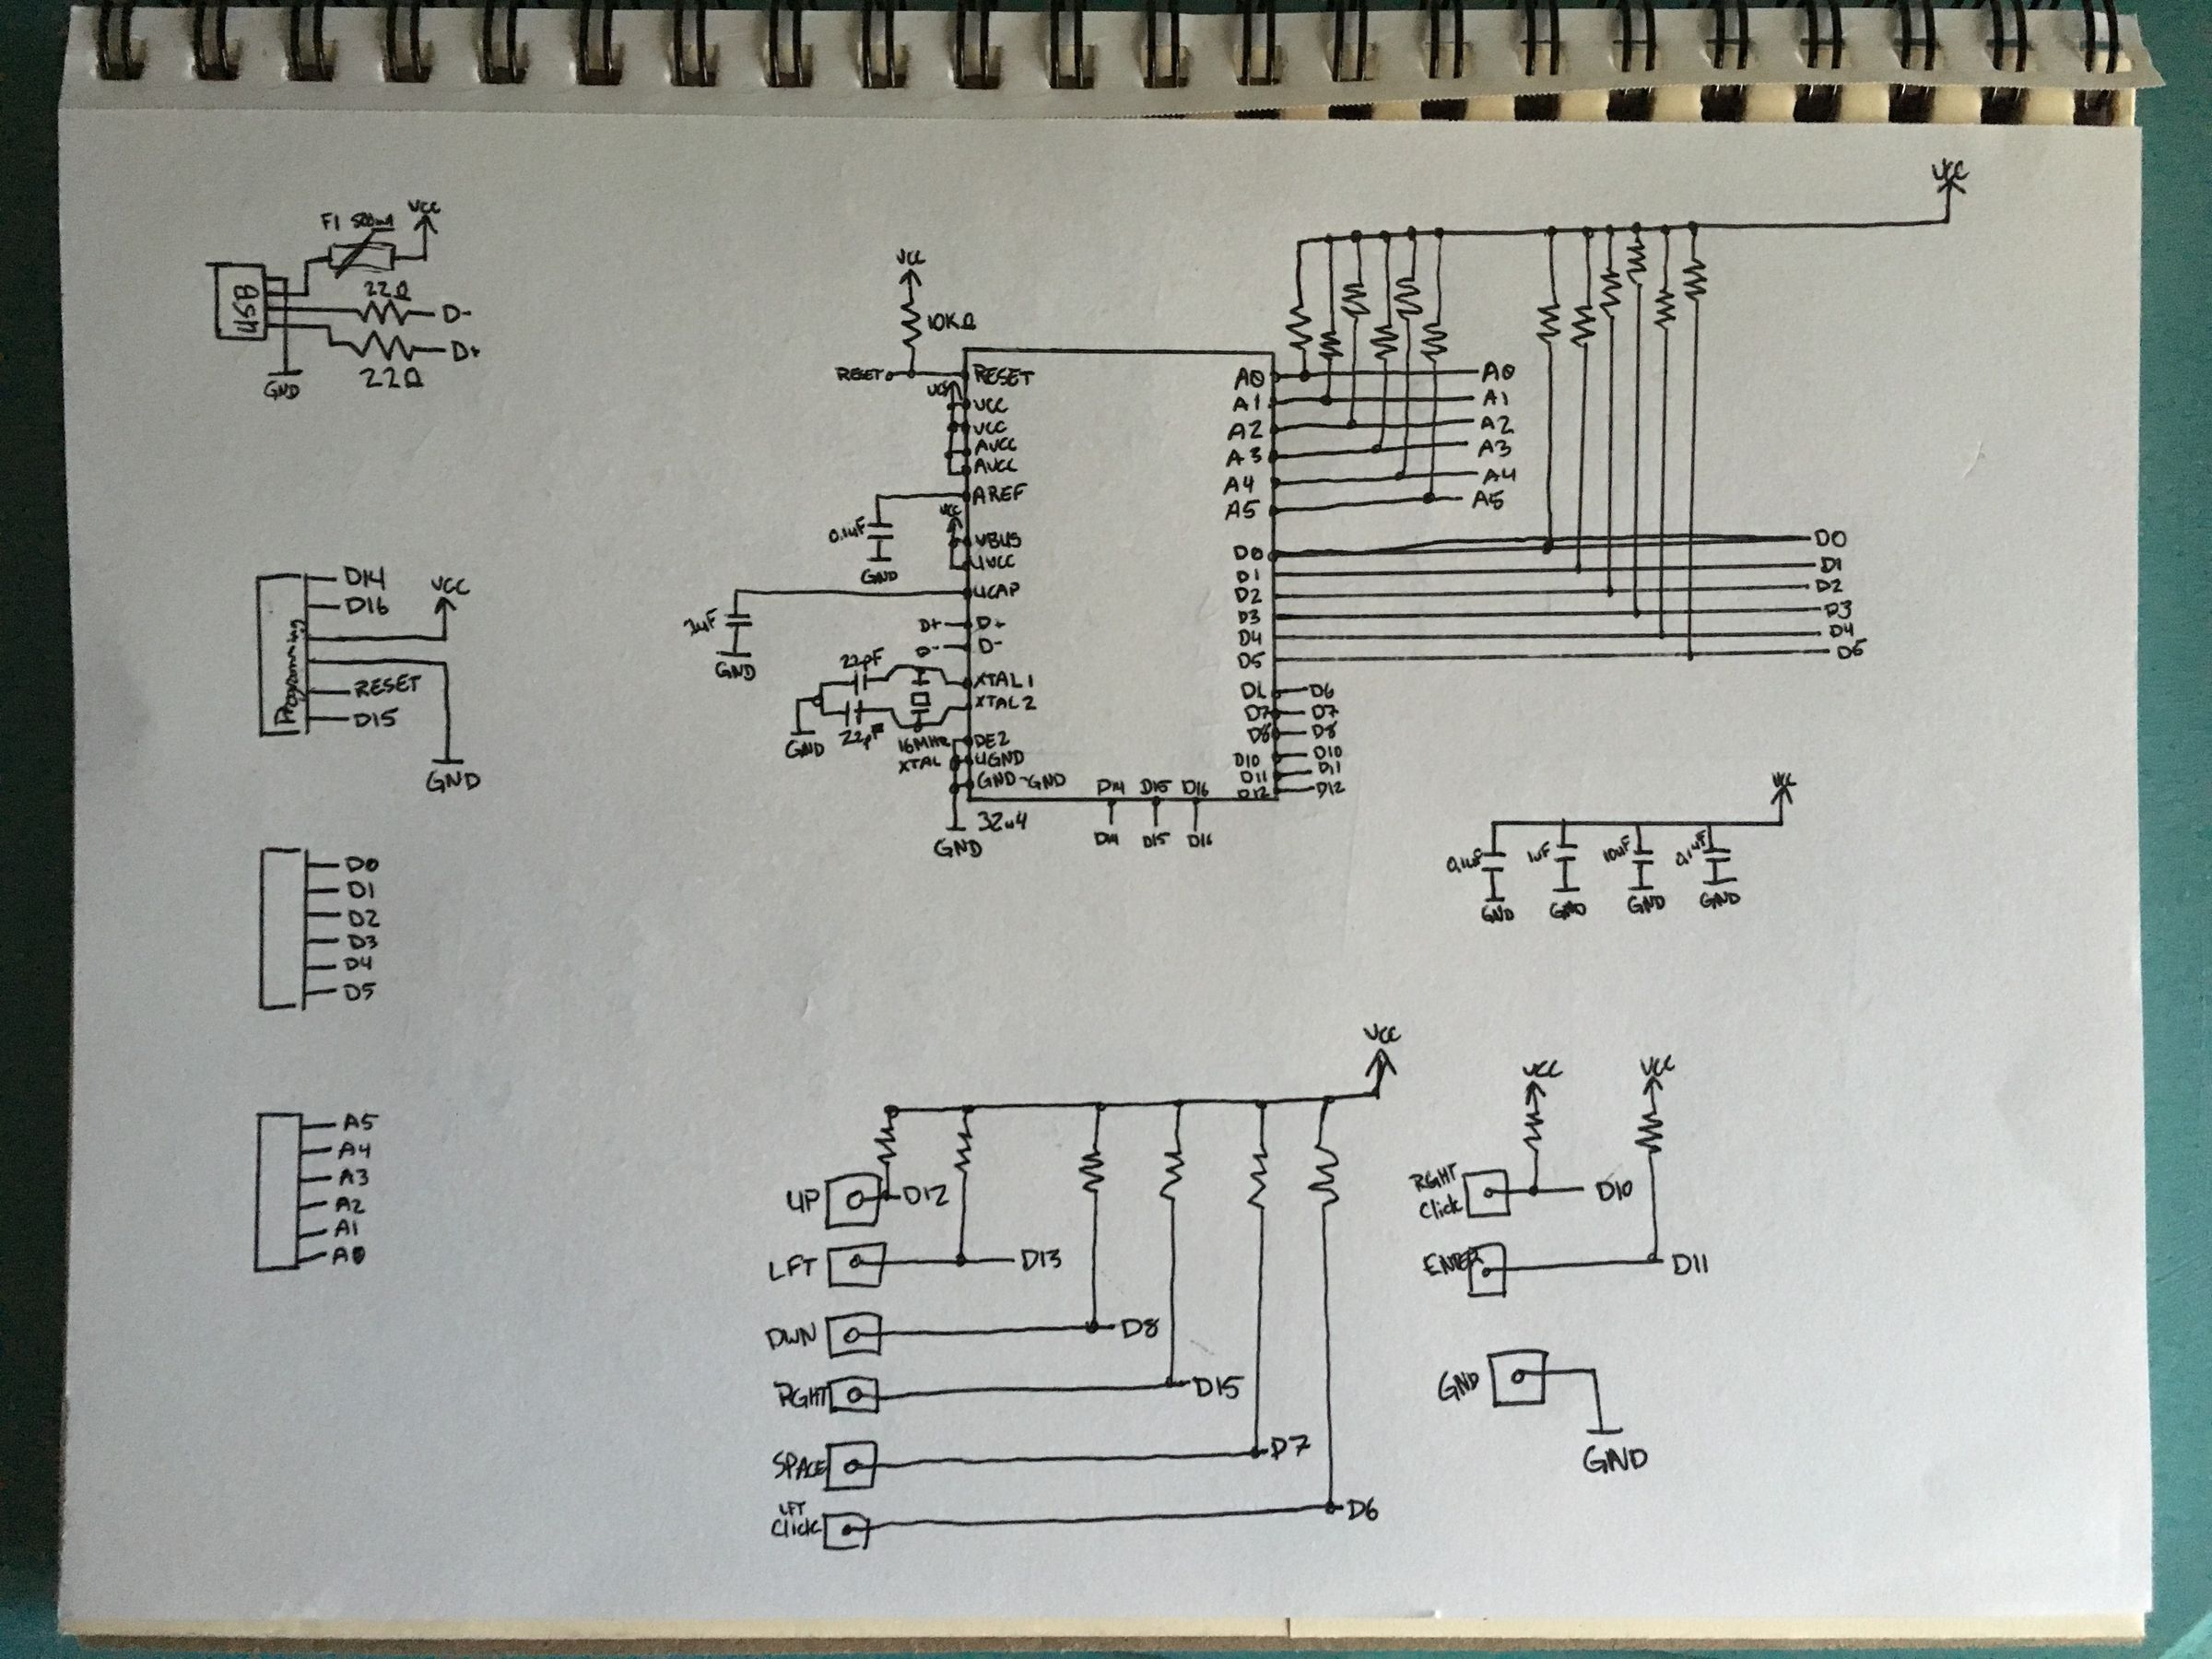 F1 500mA
VCC
USB
22Ω
D-
D+
22Ω
GND
Programming
D14
D16
VCC
RESET
D15
GND
D0
D1
D2
D3
D4
D5
A5
A4
A3
A2
A1
A0
VCC
10KΩ
RESET
RESET
VCC
VCC
VCC
AVCC
AVCC
AREF
0.1uF
GND
VCC
VBUS
UVCC
UCAP
1uF
GND
D+
D+
D-
D-
22pF
XTAL1
XTAL2
GND
22pF
16MHz
XTAL
UGND
GND-GND
GND
32u4
D14 D15 D16
D14 D15 D16
VCC
A0
A0
A1
A1
A2
A2
A3
A3
A4
A4
A5
A5
D0
D0
D1
D1
D2
D2
D3
D3
D4
D4
D5
D6
D7
D7
D8
D8
D10
D10
D11
D11
D12
D12
VCC
0.1uF
1uF
10uF
0.1uF
GND
GND
GND
GND
VCC
UP
D12
LFT
D13
DWN
D8
RGHT
D15
SPACE
D7
LFT
Click
D6
VCC
VCC
RGHT
Click
D10
ENTER
D11
GND
GND